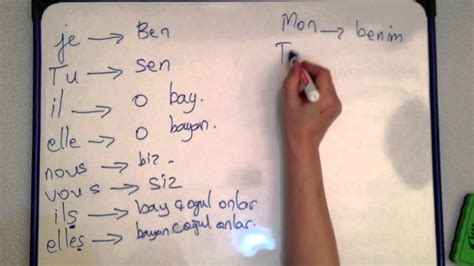 je → Ben
Tu → sen
il → o bay.
elle → o bayan.
nous → biz.
vous → siz
ils → bay çoğul onlar
elles → bayan coğul onlar.
Mon → benim
T